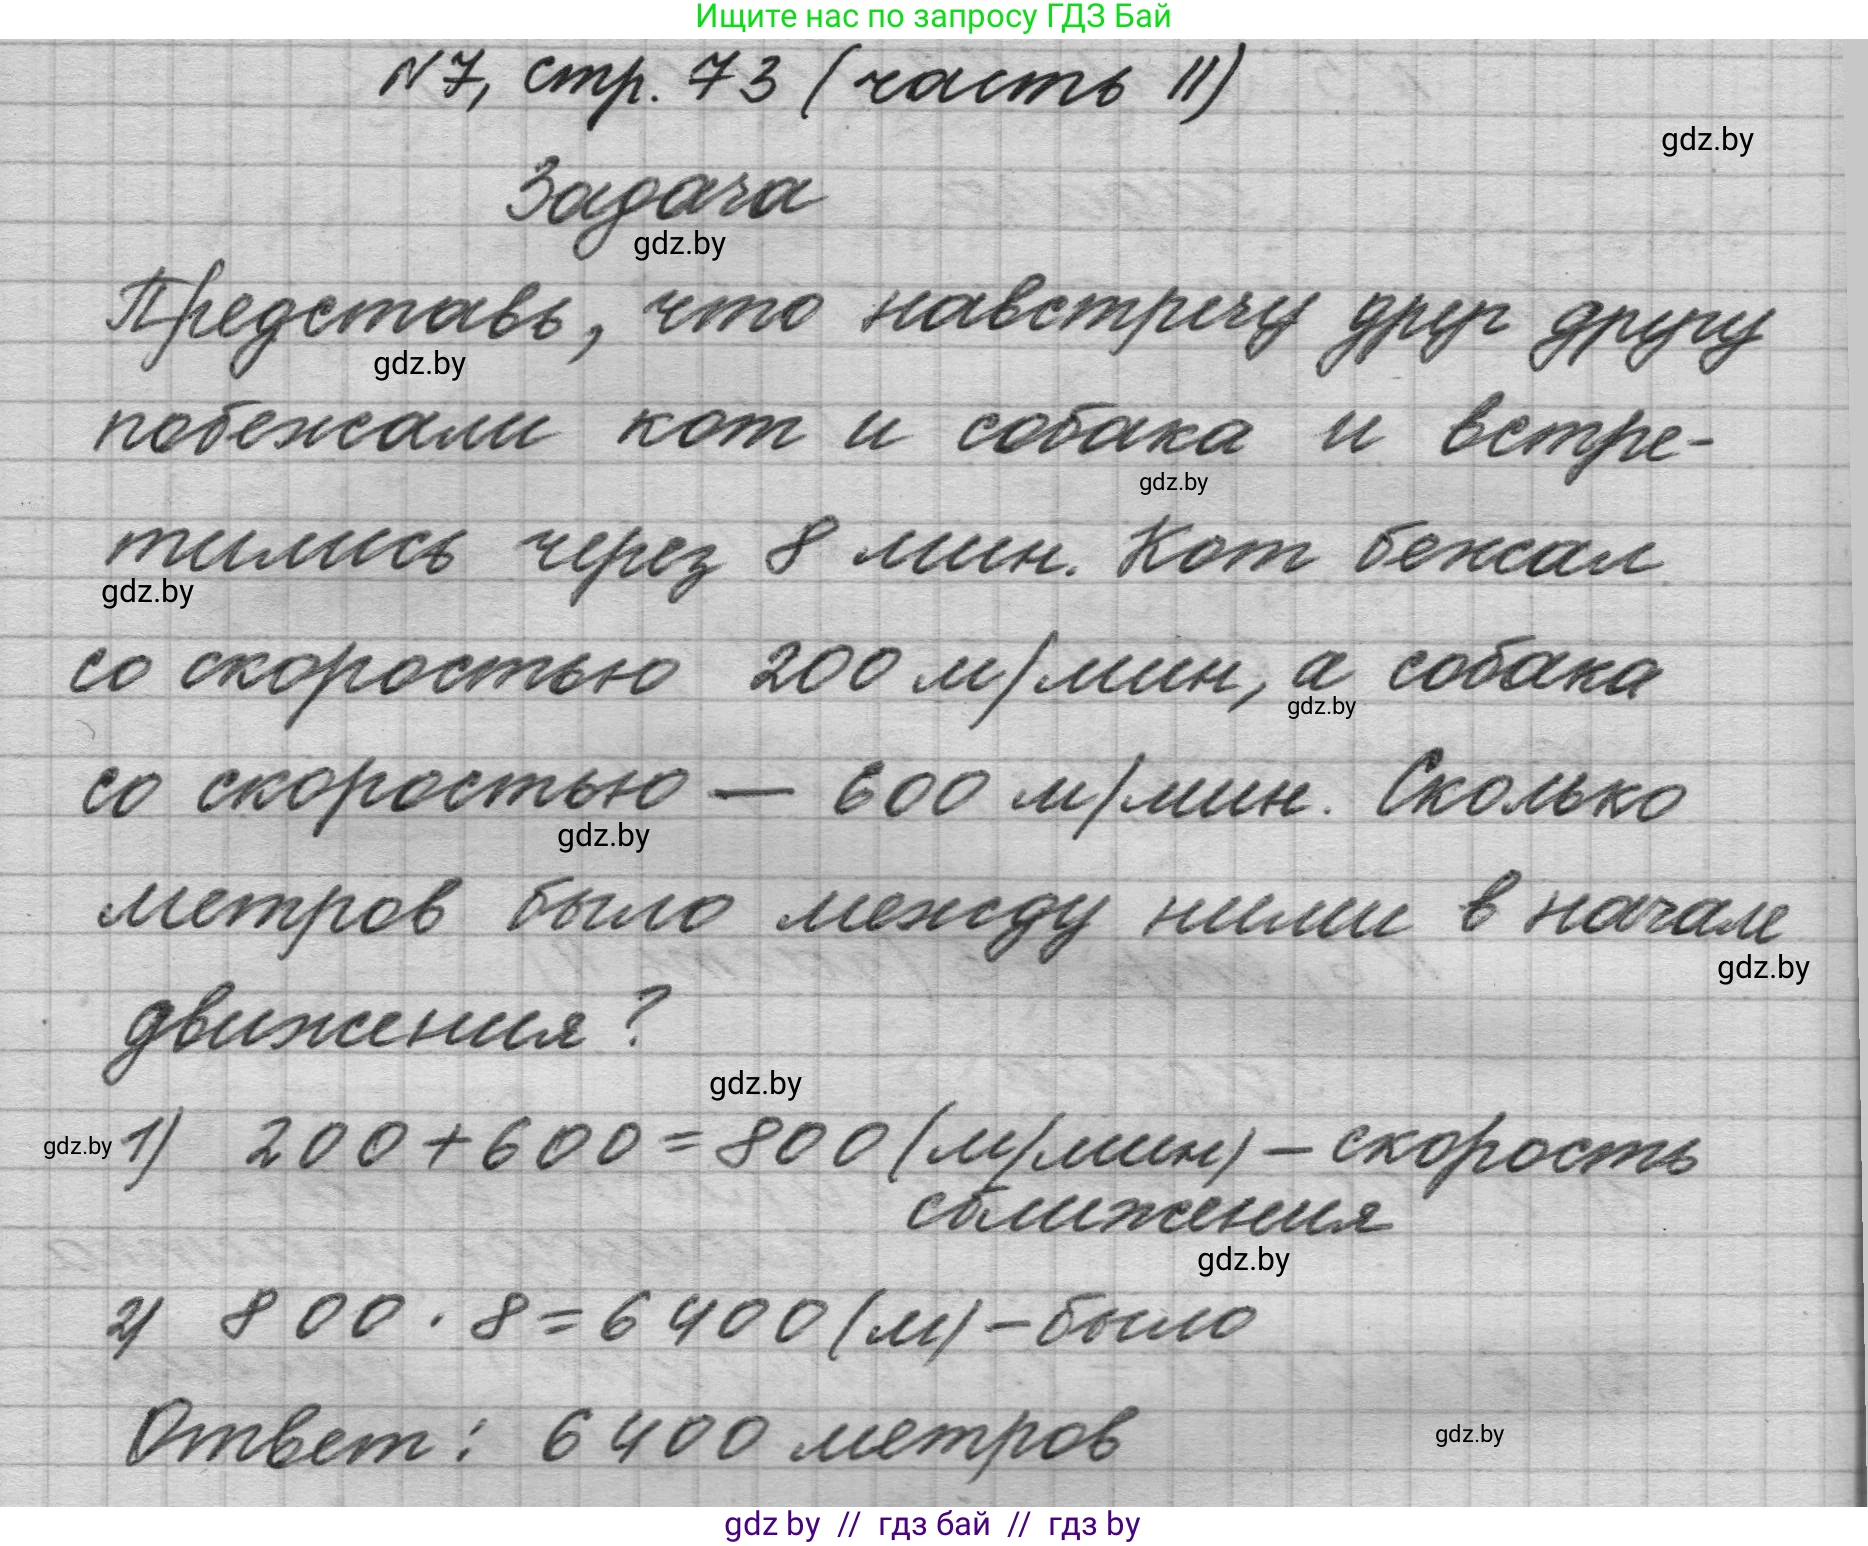 Ищите нас по запросу ГДЗ Бай
N7, стр. 73 (часть II)
gdz.by
Задача
gdz.by
Представь, что навстречу друг другу
gdz.by
побежали кот и собака и встре-
gdz.by
тились через 8 мин. Кот бежал
gdz.by
со скоростью 200 м/мин, а собака
gdz.by
со скоростью — 600 м/мин. Сколько
gdz.by
метров было между ними в начале
gdz.by
движения?
gdz.by
gdz.by 1) 200+600=800(м/мин) – скорость
сближения
gdz.by
2) 800·8=6400(м) – было
Ответ: 6400 метров
gdz.by
gdz by // гдз бай // гдз by